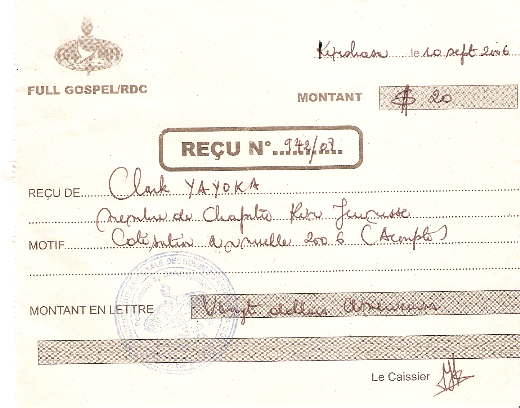 Kinshasa le 10 sept 2006
FULL GOSPEL/RDC
MONTANT $ 20
REÇU N° 942/07
REÇU DE Clark YA-YOKA
membre de Chapitre Kin Jeunesse
MOTIF Cotisation annuelle 2006 (Acompte)
MONTANT EN LETTRE Vingt dollars américains
Le Caissier